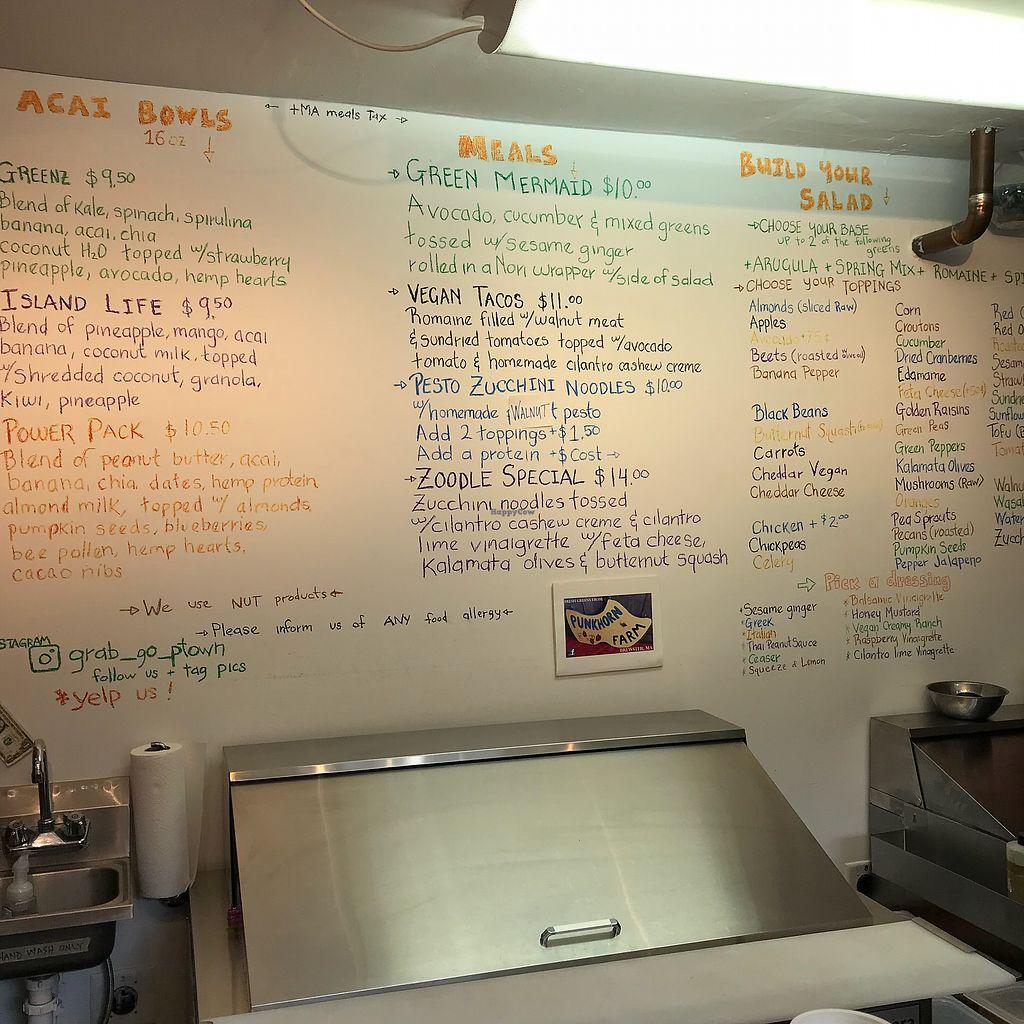 ACAI BOWLS
16oz
← +MA meals Tax →
GREENZ $9.50
Blend of Kale, spinach, spirulina
banana, acai, chia
coconut H2O topped w/strawberry
pineapple, avocado, hemp hearts
ISLAND LIFE $9.50
Blend of pineapple, mango, acai
banana, coconut milk, topped
w/shredded coconut, granola,
Kiwi, pineapple
POWER PACK $10.50
Blend of peanut butter, acai,
banana, chia, dates, hemp protein
almond milk, topped w/ almonds,
pumpkin seeds, blueberries,
bee pollen, hemp hearts,
cacao nibs
→ We use NUT products ←
→ Please inform us of ANY food allergy ←
STAGRAM
grab_go_ptown
follow us + tag pics
*yelp us!
MEALS
→ GREEN MERMAID $10.00
Avocado, cucumber & mixed greens
tossed w/sesame ginger
rolled in a Nori wrapper w/side of salad
→ VEGAN TACOS $11.00
Romaine filled w/walnut meat
& sundried tomatoes topped w/avocado
tomato & homemade cilantro cashew creme
→ PESTO ZUCCHINI NOODLES $10.00
w/homemade WALNUT pesto
Add 2 toppings +$1.50
Add a protein +$Cost →
→ ZOODLE SPECIAL $14.00
Zucchini noodles tossed
HappyCow
w/cilantro cashew creme & cilantro
lime vinaigrette w/feta cheese,
Kalamata olives & butternut squash
FRESH GREENS FROM
PUNKHORN
FARM
BREWSTER, MA
BUILD YOUR
SALAD
→ CHOOSE YOUR BASE
up to 2 of the following
greens
+ ARUGULA + SPRING MIX + ROMAINE + SPI
→ CHOOSE YOUR TOPPINGS
Almonds (Sliced Raw)
Apples
Avocado +75¢
Beets (roasted
Banana Pepper
Black Beans
Butternut Squash
Carrots
Cheddar Vegan
Cheddar Cheese
Chicken + $2.00
Chickpeas
Celery
Corn
Croutons
Cucumber
Dried Cranberries
Edamame
Feta Cheese (+50¢)
Golden Raisins
Green Peas
Green Peppers
Kalamata Olives
Mushrooms (Raw)
Oranges
Pea Sprouts
Pecans (roasted)
Pumpkin Seeds
Pepper Jalapeno
Red
Red
Sesam
Straw
Sundr
Sunflow
Tofu
Tomat
Walnu
Wasa
Water
Zucch
⇒ Pick a dressing
*Sesame ginger
*Greek
*Italian
*Thai Peanut Sauce
*Ceaser
*Squeeze of Lemon
*Balsamic Vinaigrette
*Honey Mustard
*Vegan Creamy Ranch
*Raspberry Vinaigrette
*Cilantro lime Vinaigrette
HAND WASH ONLY